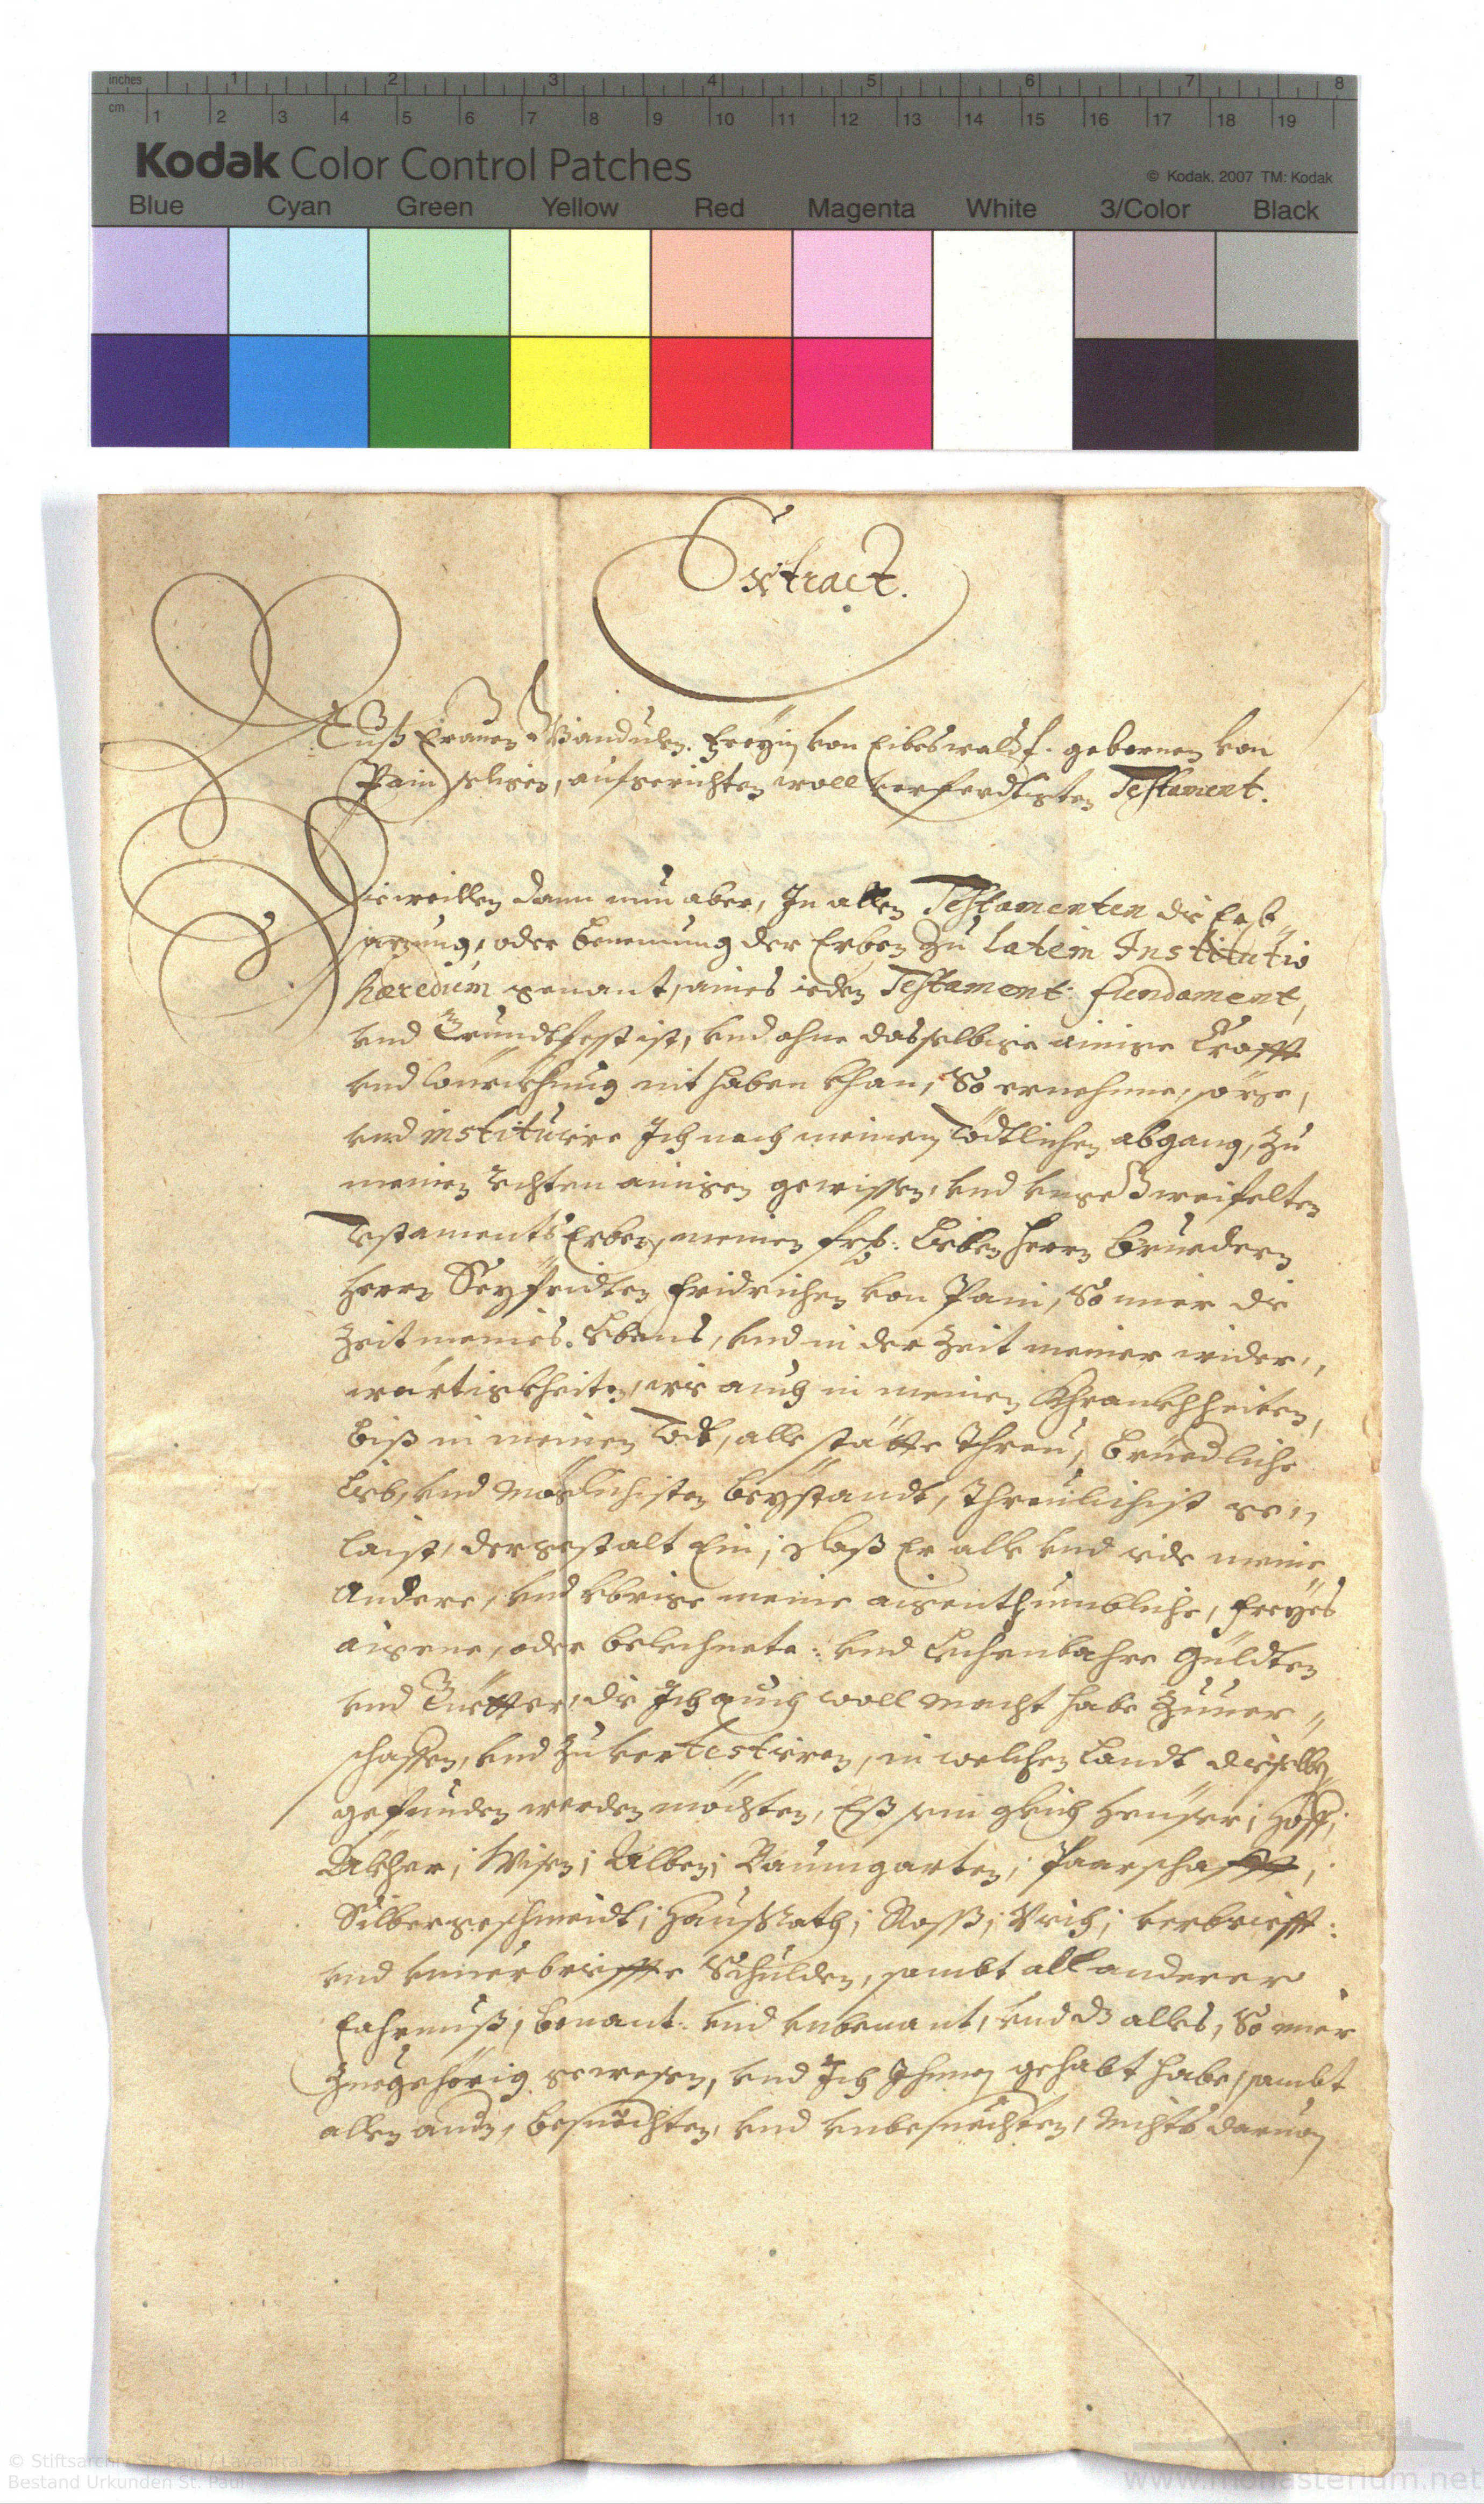 inches 1 2 3 4 5 6 7 8
cm 1 2 3 4 5 6 7 8 9 10 11 12 13 14 15 16 17 18 19
Kodak Color Control Patches
© Kodak, 2007 TM: Kodak
Blue Cyan Green Yellow Red Magenta White 3/Color Black
Extract.
Auß Frauen Wandulen Freyin von Eibeswaldt gebornen von
Pain seligen, aufgerichten woll verferdtigten Testament.
Dieweillen dann nun aber, In allen Testamenten die Erb
sezung, oder Benennung der Erben zu latein Institutio
hæredum genant, aines ieden Testament: fundament,
vnd Grundtfest ist, vnd ohne dasselbige ainige Crafft
vnd würckhung nit haben khan, So ernehme, söze,
vnd instituire Ich nach meinem Tödtlichen abgang, zu
meinen rechten ainigen gewissen, vnd vngezweifelten
Testaments Erben, meinen lieben Herrn Bruedern
Herrn Seyfridten Fridrichen von Pain, So mier die
Zeit meines Lebens, vnd in der Zeit meiner wider„
wärtigkheiten, wie auch in meinen Khrankhheiten,
Biß in meinen Todt, alle stätte Threu, Brüedliche
Lieb, vnd Möglichisten Beystandt, Threulichist ge„
laist, dergestalt Ein, daß Er alle vnd iede meine
Andere, vnd vbrige meine aigenthumbliche, Freyes
aigene, oder belechnete: vnd Lechenbahre Güldten
vnd Güetter, die Ich auch woll Macht habe zuuer„
schaffen, vnd zu vertestiren, in welchen Landt dieselben
gefunden werden möchten, Eß sein gleich Heuser; Hoff;
Äkher; Wisen; Alben; Baumgarten; Paarschafft;
Silbergeschmeidt; Haußrath; Roß; Vich; verbriefft:
vnd vnuerbriffte Schulden, sambt all anderer
Fahrnuß, Benant: vnd vnbenant, vnd alles, So mier
zuegehörig gewesen, vnd Ich Ihnnen gehabt habe, sambt
allen besuechten, vnd vnbesuechten, Nichts dauon
© Stiftsarchiv St. Paul / Lavanttal 2011
Bestand Urkunden St. Paul
www.monasterium.net